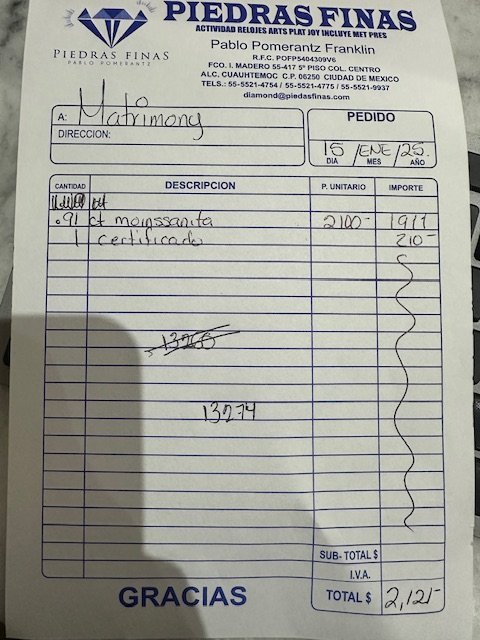 PIEDRAS FINAS
ACTIVIDAD RELOJES ARTS PLAT JOY INCLUYE MET PRES
PIEDRAS FINAS
PABLO POMERANTZ
Pablo Pomerantz Franklin
R.F.C. POFP5404309V6
FCO. I. MADERO 55-417 5º PISO COL. CENTRO
ALC. CUAUHTEMOC C.P. 06250 CIUDAD DE MEXICO
TELS.: 55-5521-4754 / 55-5521-4775 / 55-5521-9937
diamond@piedasfinas.com
A: Matrimony
DIRECCION:
PEDIDO
15 / ENE / 25.
DIA MES AÑO
CANTIDAD DESCRIPCION P. UNITARIO IMPORTE
.91 ct moinssanita 2100- 1911
1 certificado 210-
13274
SUB- TOTAL $
I.V.A.
TOTAL $ 2,121-
GRACIAS